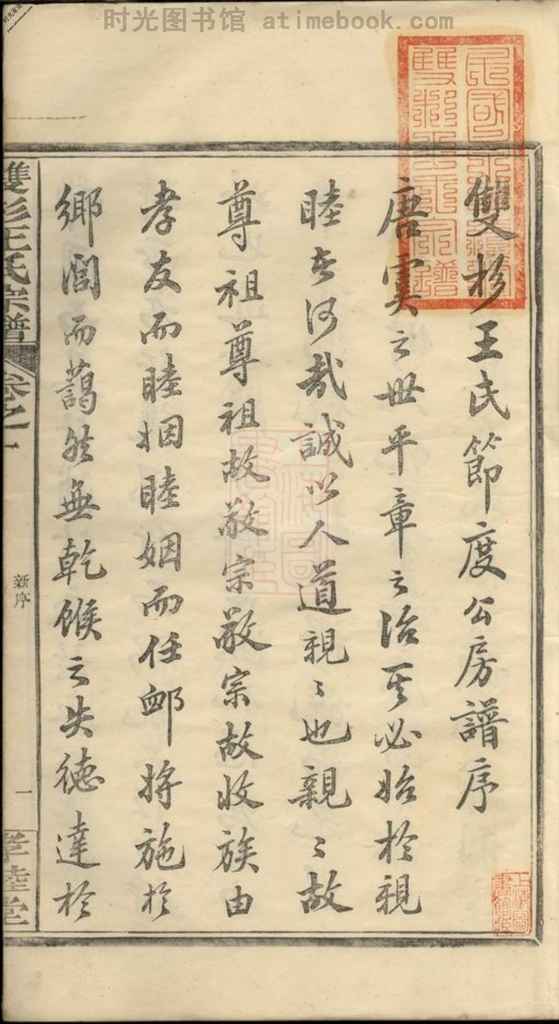 时光图书馆 atimebook.com
雙杉王氏節度公房譜序
唐虞之世平章之治其必始於親
睦者何哉誠以人道親〻也親〻故
尊祖尊祖故敬宗敬宗故收族由
孝友而睦姻睦姻而任卹將施於
鄉閭而藹然無乾餱之失德達於
雙杉王氏宗譜
卷之一
新序
一
孝睦堂